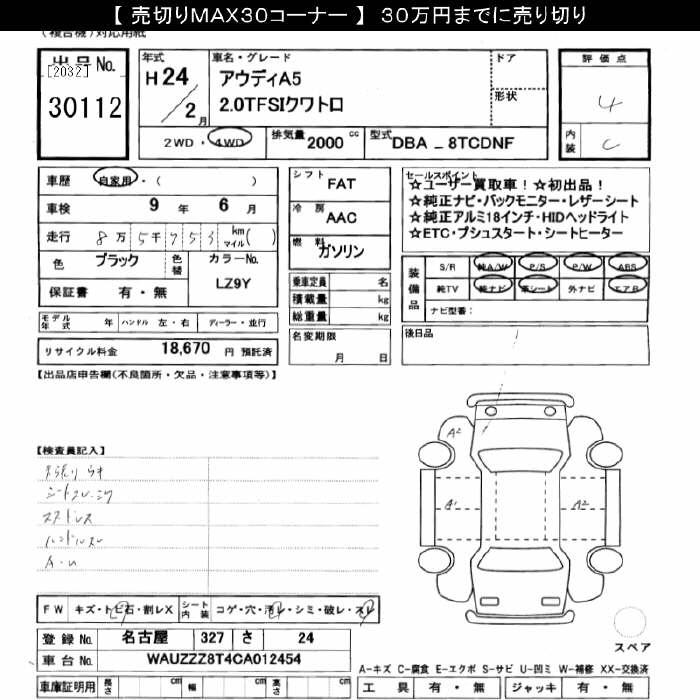 【 売切りMAX30コーナー 】 30万円までに売り切り
(複合機)対応用紙
出品No.
[2032]
30112
年式
H24
/2月
車名・グレード
アウディA5
2.0TFSIクワトロ
ドア
形状
評価点
4
内装
C
2WD・4WD
排気量 2000 cc
型式 DBA _ 8TCDNF
車歴 自家用・( )
車検 9 年 6 月
走行 8万5千753 km マイル( )
色 ブラック 色替 カラーNo. LZ9Y
保証書 有・無
シフト FAT
冷房 AAC
燃料 ガソリン
乗車定員 名
積載量 kg
総重量 kg
名変期限
月 日
セールスポイント
☆ユーザー買取車!☆初出品!
☆純正ナビ・バックモニター・レザーシート
☆純正アルミ18インチ・HIDヘッドライト
☆ETC・プシュスタート・シートヒーター
装備品 S/R 純A/W P/S P/W ABS
純TV 純ナビ 革シート 外ナビ エアB
ナビ型番:
後日品
モデル年式 年 ハンドル 左・右 ディーラー・並行
リサイクル料金 18,670 円 預託済
【出品店申告欄(不良箇所・欠品・注意事項等)】
【検査員記入】
スタッドレス
ハンドルスレ
A2
A1
A2
FW キズ・トビ石・割レX シート内装 コゲ・穴・汚レ・シミ・破レ・スレ
登録No. 名古屋 327 さ 24
車台No. WAUZZZ8T4CA012454
車庫証明用 長さ cm 幅 cm 高さ cm
スペア
A-キズ C-腐食 E-エクボ S-サビ U-凹ミ W-補修 XX-交換済
工具 有・無 ジャッキ 有・無